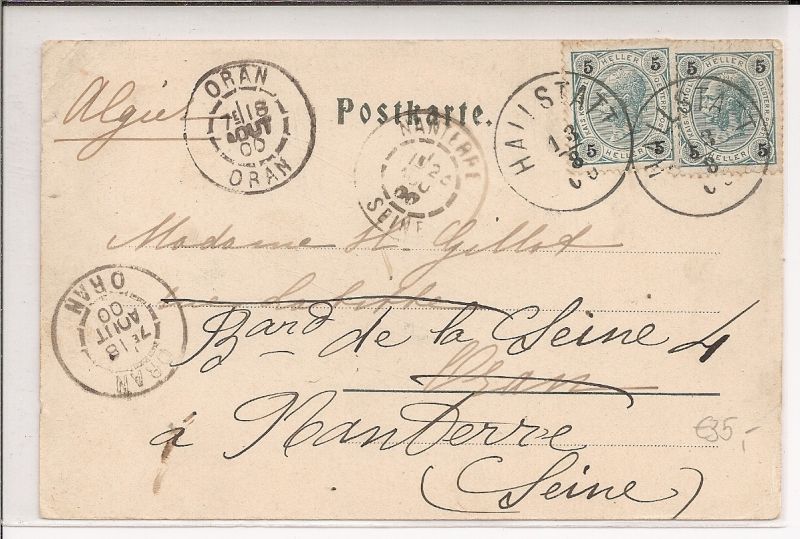 Postkarte.
Algier
ORAN
7E 18
AOUT
00
ORAN
NANTERRE
SEINE
5 HELLER 5
5 HELLER 5
5 HELLER 5
5 HELLER 5
HALLSTATT
13
8
HALLSTATT
8
Madame H Gillot
Bard de la Seine 4
Oran
à Nanterre
(Seine)
ORAN
7E 18
AOUT
00
ORAN
€35,-